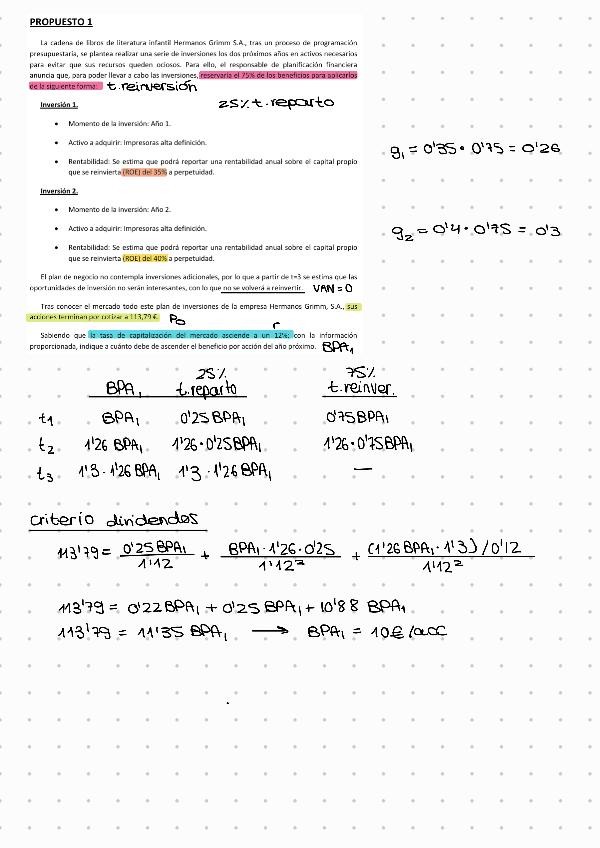 PROPUESTO 1
La cadena de libros de literatura infantil Hermanos Grimm S.A., tras un proceso de programación
presupuestaria, se plantea realizar una serie de inversiones los dos próximos años en activos necesarios
para evitar que sus recursos queden ociosos. Para ello, el responsable de planificación financiera
anuncia que, para poder llevar a cabo las inversiones, reservaría el 75% de los beneficios para aplicarlos
de la siguiente forma: t.reinversión
25% t.reparto
Inversión 1.
• Momento de la inversión: Año 1.
• Activo a adquirir: Impresoras alta definición.
• Rentabilidad: Se estima que podrá reportar una rentabilidad anual sobre el capital propio
que se reinvierta (ROE) del 35% a perpetuidad.
g₁ = 0'35 • 0'75 = 0'26
Inversión 2.
• Momento de la inversión: Año 2.
• Activo a adquirir: Impresoras alta definición.
• Rentabilidad: Se estima que podrá reportar una rentabilidad anual sobre el capital propio
que se reinvierta (ROE) del 40% a perpetuidad.
g₂ = 0'4 • 0'75 = 0'3
El plan de negocio no contempla inversiones adicionales, por lo que a partir de t=3 se estima que las
oportunidades de inversión no serán interesantes, con lo que no se volverá a reinvertir. VAN = 0
Tras conocer el mercado todo este plan de inversiones de la empresa Hermanos Grimm, S.A., sus
acciones terminan por cotizar a 113,79 €. P₀
r
Sabiendo que la tasa de capitalización del mercado asciende a un 12%; con la información
proporcionada, indique a cuánto debe de ascender el beneficio por acción del año próximo. BPA₁
25% 75%
BPA₁ t.reparto t.reinver.
t₁ BPA₁ 0'25 BPA₁ 0'75 BPA₁
t₂ 1'26 BPA₁ 1'26 • 0'25 BPA₁ 1'26 • 0'75 BPA₁
t₃ 1'3 · 1'26 BPA₁ 1'3 · 1'26 BPA₁ —
criterio dividendos
113'79 = 0'25 BPA₁ / 1'12 + BPA₁ · 1'26 · 0'25 / 1'12² + (1'26 BPA₁ · 1'3) / 0'12 / 1'12²
113'79 = 0'22 BPA₁ + 0'25 BPA₁ + 10'88 BPA₁
113'79 = 11'35 BPA₁ → BPA₁ = 10€ /acc